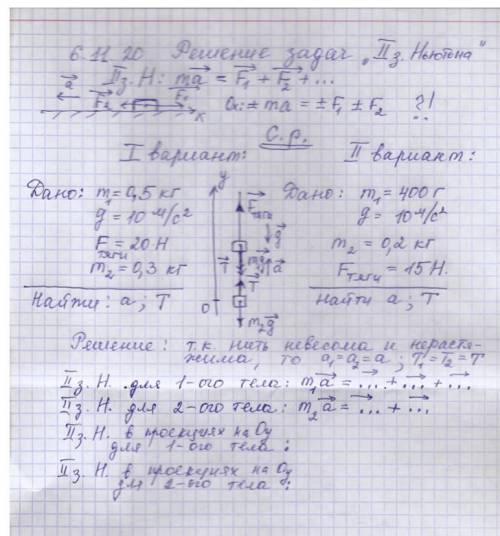 6.11.20 Решение задач „IIз. Ньютона"
IIз. Н: ma = F₁ + F₂ + ...
a
F₂ F₁
x
Ox: ±ma = ±F₁ ± F₂ ?!
С.р.
I вариант: II вариант:
Дано: m₁ = 0,5 кг
g = 10 м/с²
F тяги = 20 Н
m₂ = 0,3 кг
Найти: a; T
y
F тяги
g
m₁g
a
T
T
0
m₂g
Дано: m₁ = 400 г
g = 10 м/с²
m₂ = 0,2 кг
F тяги = 15 Н.
Найти a; T
Решение: т.к. нить невесома и нерастя-
жима, то a₁ = a₂ = a; T₁ = T₂ = T
IIз. Н. для 1-ого тела: m₁a = ... + ... + ...
IIз. Н. для 2-ого тела: m₂a = ... + ...
IIз. Н. в проекциях на Oy
для 1-ого тела:
IIз. Н. в проекциях на Oy
для 2-ого тела: